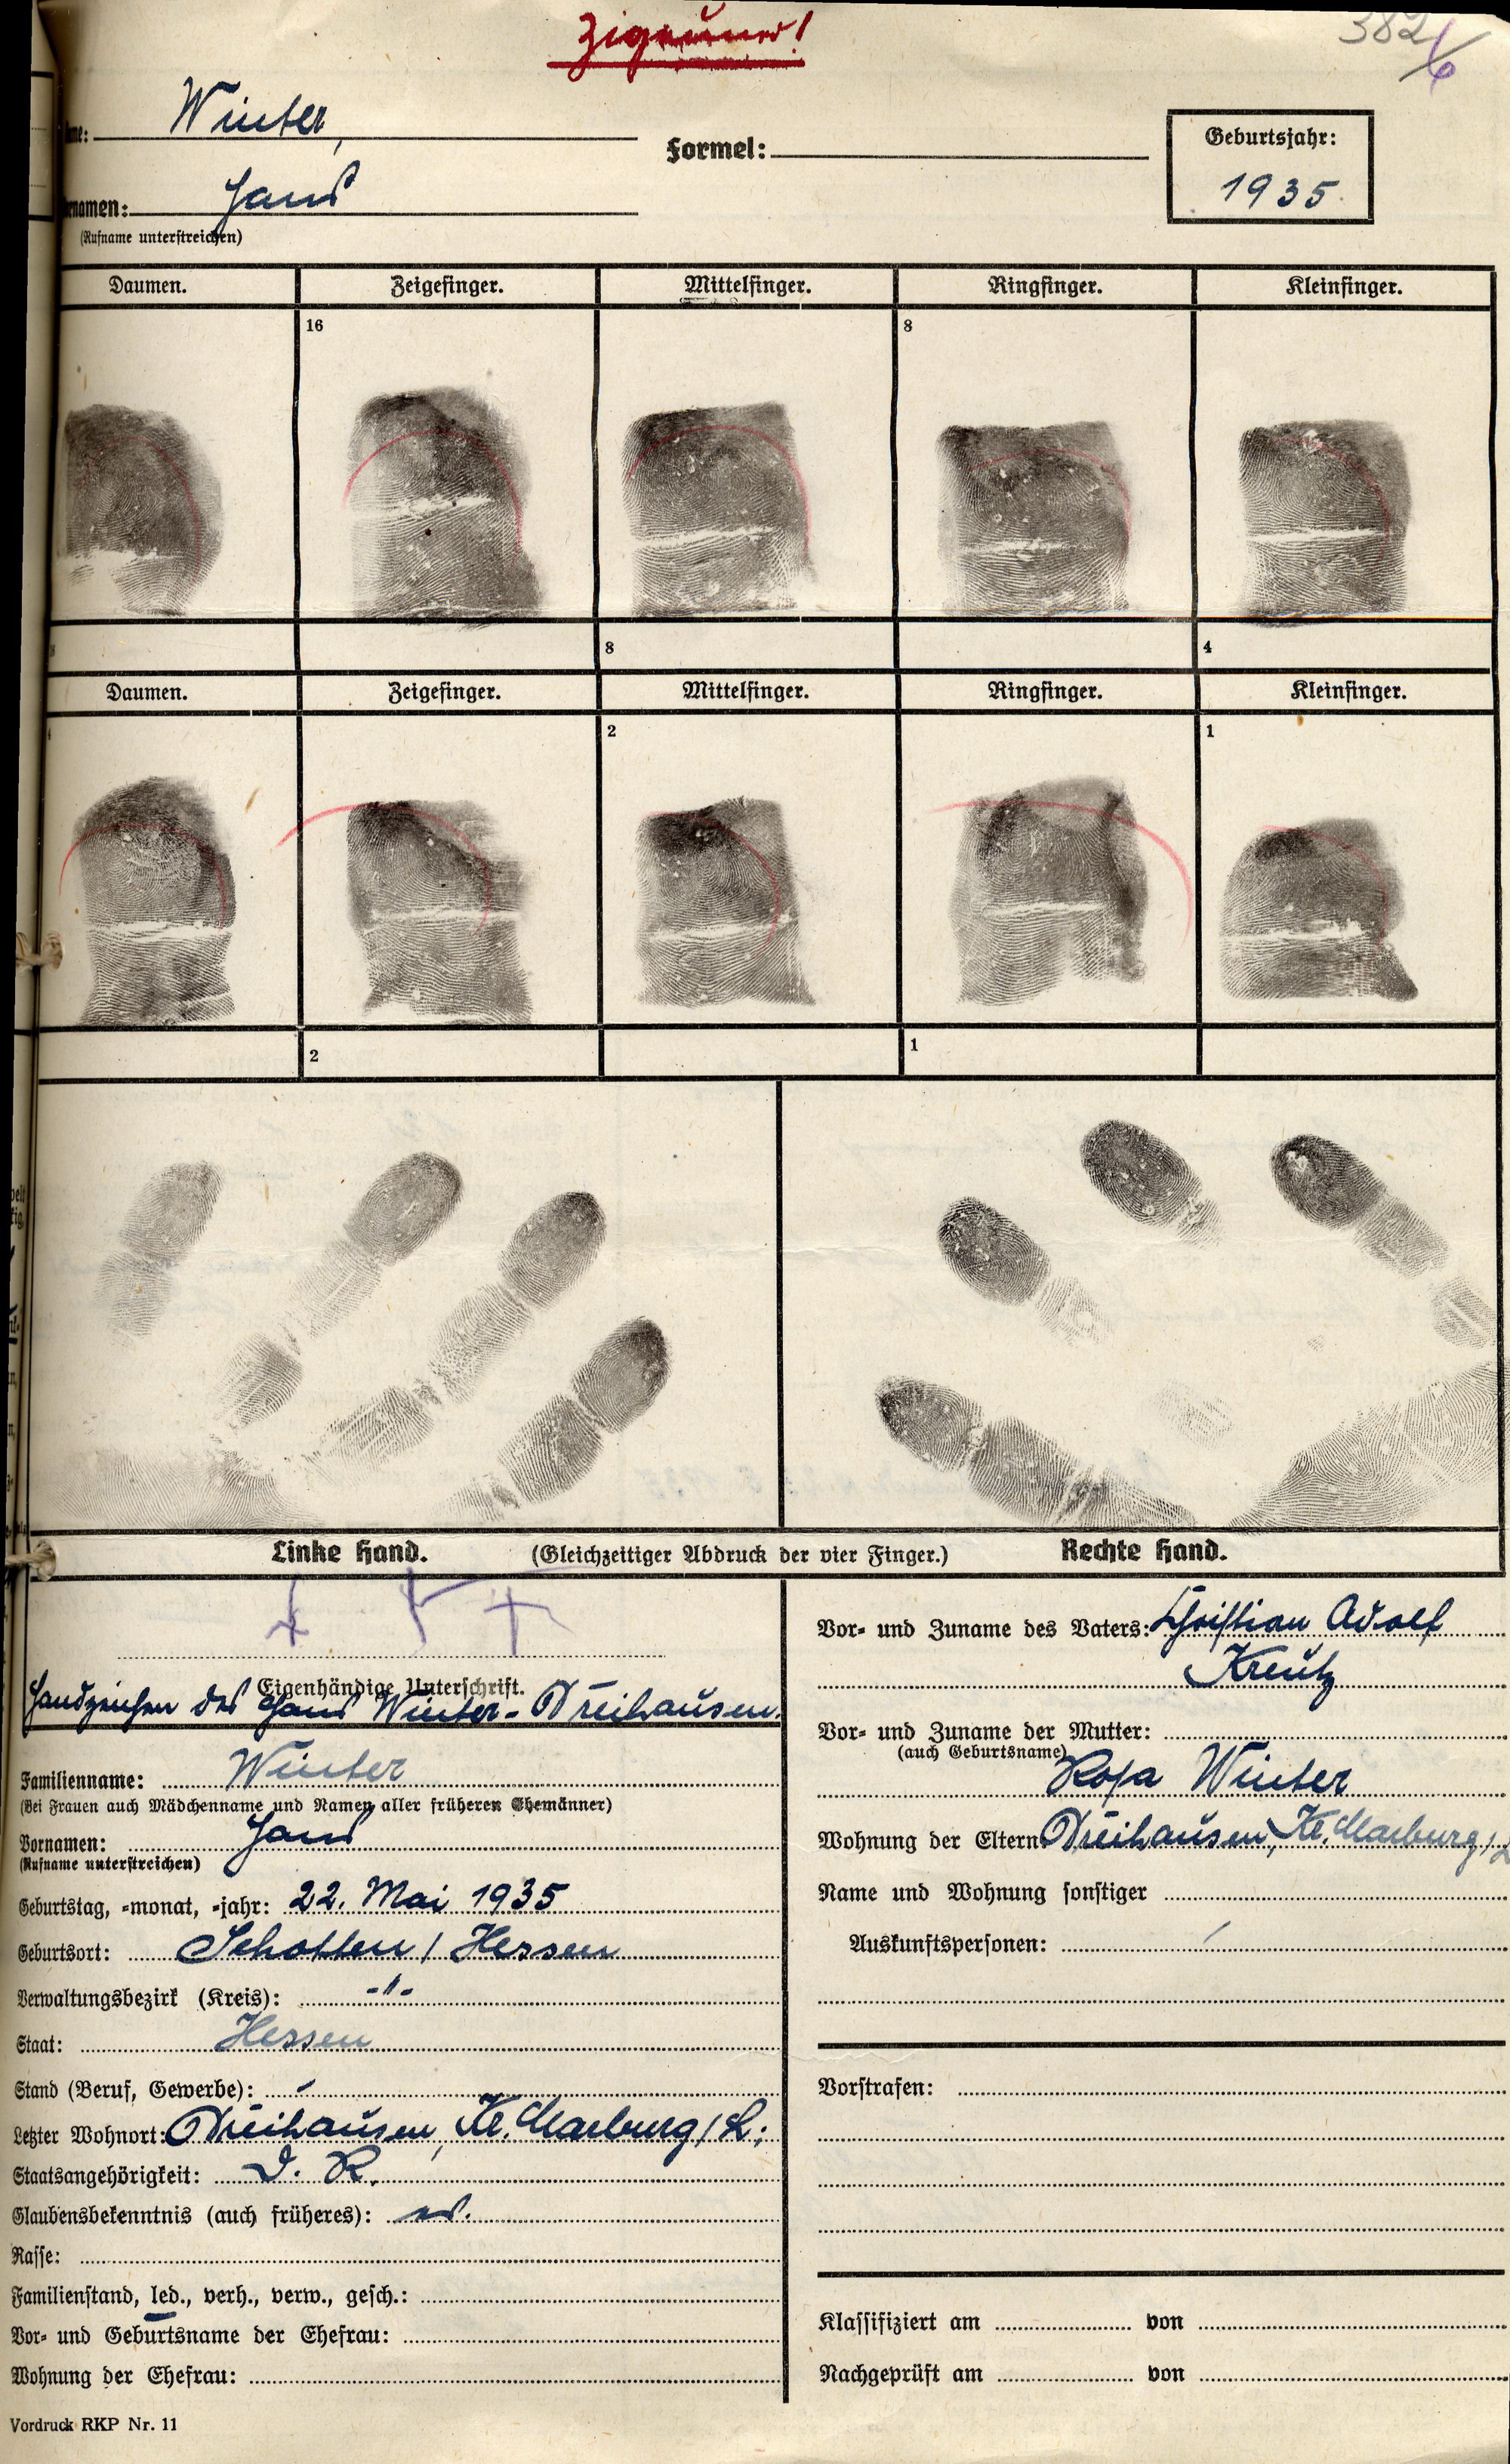 Zigeuner!
382/6
Winter,
Formel:
Geburtsjahr:
1935.
rnamen: Hans
(Rufname unterstreichen)
Daumen. Zeigefinger. Mittelfinger. Ringfinger. Kleinfinger.
16 8
8 4
Daumen. Zeigefinger. Mittelfinger. Ringfinger. Kleinfinger.
2 1
2 1
Linke Hand. (Gleichzeitiger Abdruck der vier Finger.) Rechte Hand.
+ + +
Eigenhändige Unterschrift.
Handzeichen des Hans Winter - Dreihausen.
Familienname: Winter
(Bei Frauen auch Mädchenname und Namen aller früheren Ehemänner)
Vornamen: Hans
(Rufname unterstreichen)
Geburtstag, -monat, -jahr: 22. Mai 1935
Geburtsort: Schotten / Hessen
Verwaltungsbezirk (Kreis): -"-
Staat: Hessen
Stand (Beruf, Gewerbe): -
Letzter Wohnort: Dreihausen, Kr. Marburg / L.
Staatsangehörigkeit: D. R.
Glaubensbekenntnis (auch früheres): ev.
Rasse:
Familienstand, led., verh., verw., gesch.:
Vor- und Geburtsname der Ehefrau:
Wohnung der Ehefrau:
Vordruck RKP Nr. 11
Vor- und Zuname des Vaters: Christian Adolf
Kreutz
Vor- und Zuname der Mutter:
(auch Geburtsname)
Rosa Winter
Wohnung der Eltern Dreihausen, Kr. Marburg / L
Name und Wohnung sonstiger
Auskunftspersonen: /
Vorstrafen:
Klassifiziert am von
Nachgeprüft am von